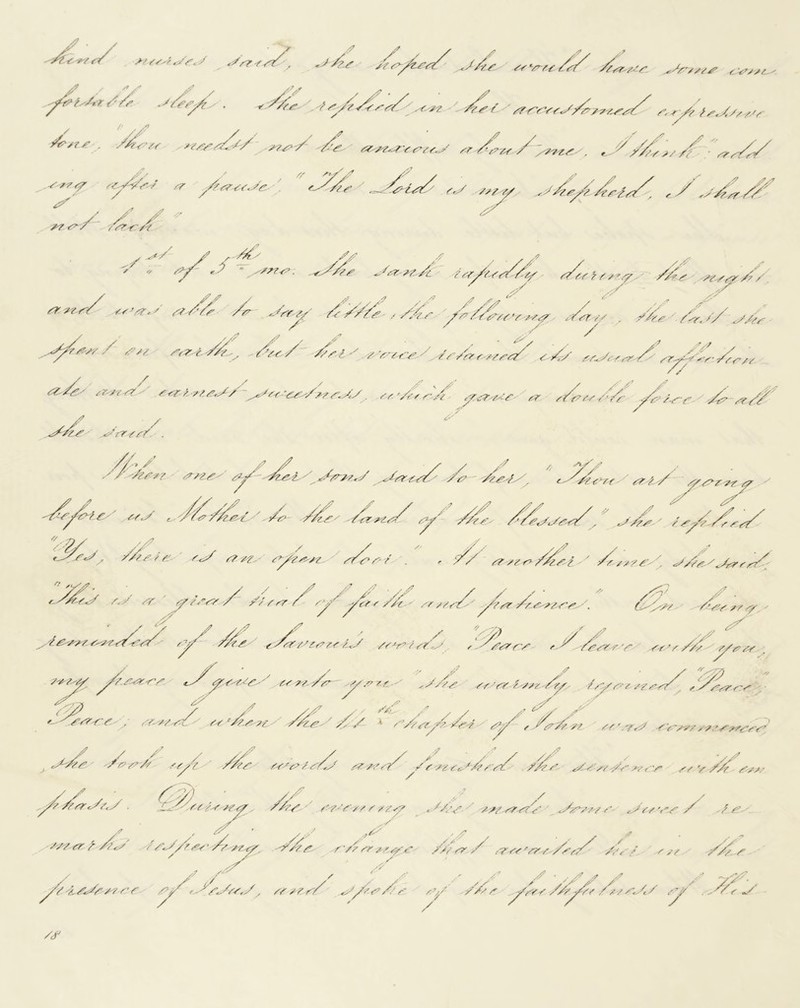 kind nurses said, she hoped she would have some com
fortable sleep. She replied in her accustomed expressive
tone, "thou needst not be anxious about me, I think": add
ing after a pause, "The Lord is my shepherd, I shall
not lack."
1st of 5th mo. She sank rapidly during the night,
and was able to say little, the following day, the last she
spent on earth, but her voice retained its usual affection-
ate and earnest sweetness, which gave a double force to all
she said.
When one of her sons said to her, "Thou art going
before us Mother to the land of the blessed", she replied
"Yes, there is an open door." At another time, she said,
"This is a great trial of faith and patience." On being
reminded of the Saviour's words, "Peace I leave with you,
my peace I give unto you" she warmly rejoined, "Peace,"
Peace; and when the 14th chapter of John was commenced,
she took up the words and finished the sentence with em
phasis. During the evening she made some sweet re-
marks respecting the change that awaited her in the
presence of Jesus, and spoke of the faithfulness of His
18